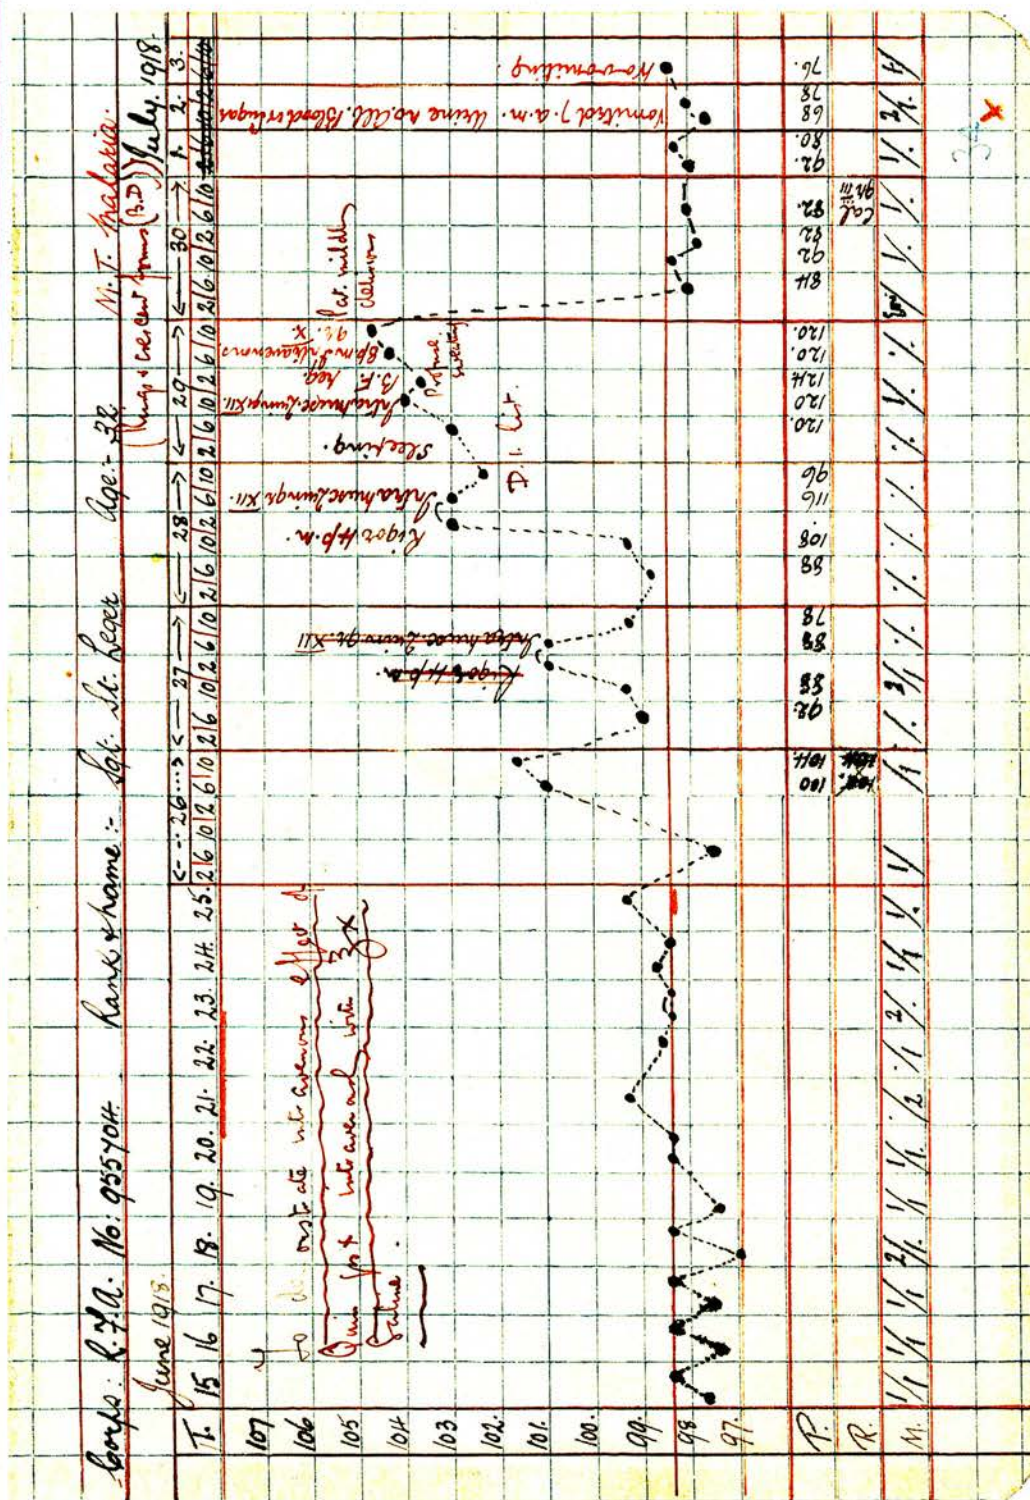 Corps: R.F.A. No: 955704. Rank & name:- Sgt. St. Leger Age:- 32 M.T. Malaria.
(Rings & crescent forms (B.D.))
June 1918. July. 1918.
<--- 26 ---> <--- 27 ---> <--- 28 ---> <--- 29 ---> <--- 30 --->
T. 15 16 17. 18. 19. 20. 21. 22. 23. 24. 25. 2 6 10 2 6 10 2 6 10 2 6 10 2 6 10 2 6 10 2 6 10 2 6 10 2 6 10 2 6 10 1. 2. 3.
107
106
105
104
103
102.
101.
100.
99.
98.
97.
To demonstrate intravenous effect of
Quin gr X intravenously with 3X
Saline
Rigor 4 p.m.
Intramusc. Quin. gr. XII
Rigor 4 p.m.
Intramusc. Quin. gr. XII.
Sleeping.
Intramusc. Quin. gr. XII.
B.F. neg.
8 p.m. Intravenous
gr. X
Pat. mildly
delirious
Profuse
sweating
D.I. list
Vomited 7 a.m. Urine no alb. Blood or sugar
No vomiting.
P. 100 104. 92. 88 88 78 88 108. 116 96 120. 120 124. 120. 120. 84 92 82 82. 92. 80. 68 78 76.
R. Cal gr iii
M. 1/1 1/1 1/1 2/1. 1/1 1/1. 1/2 1/1 2/1. 1/1